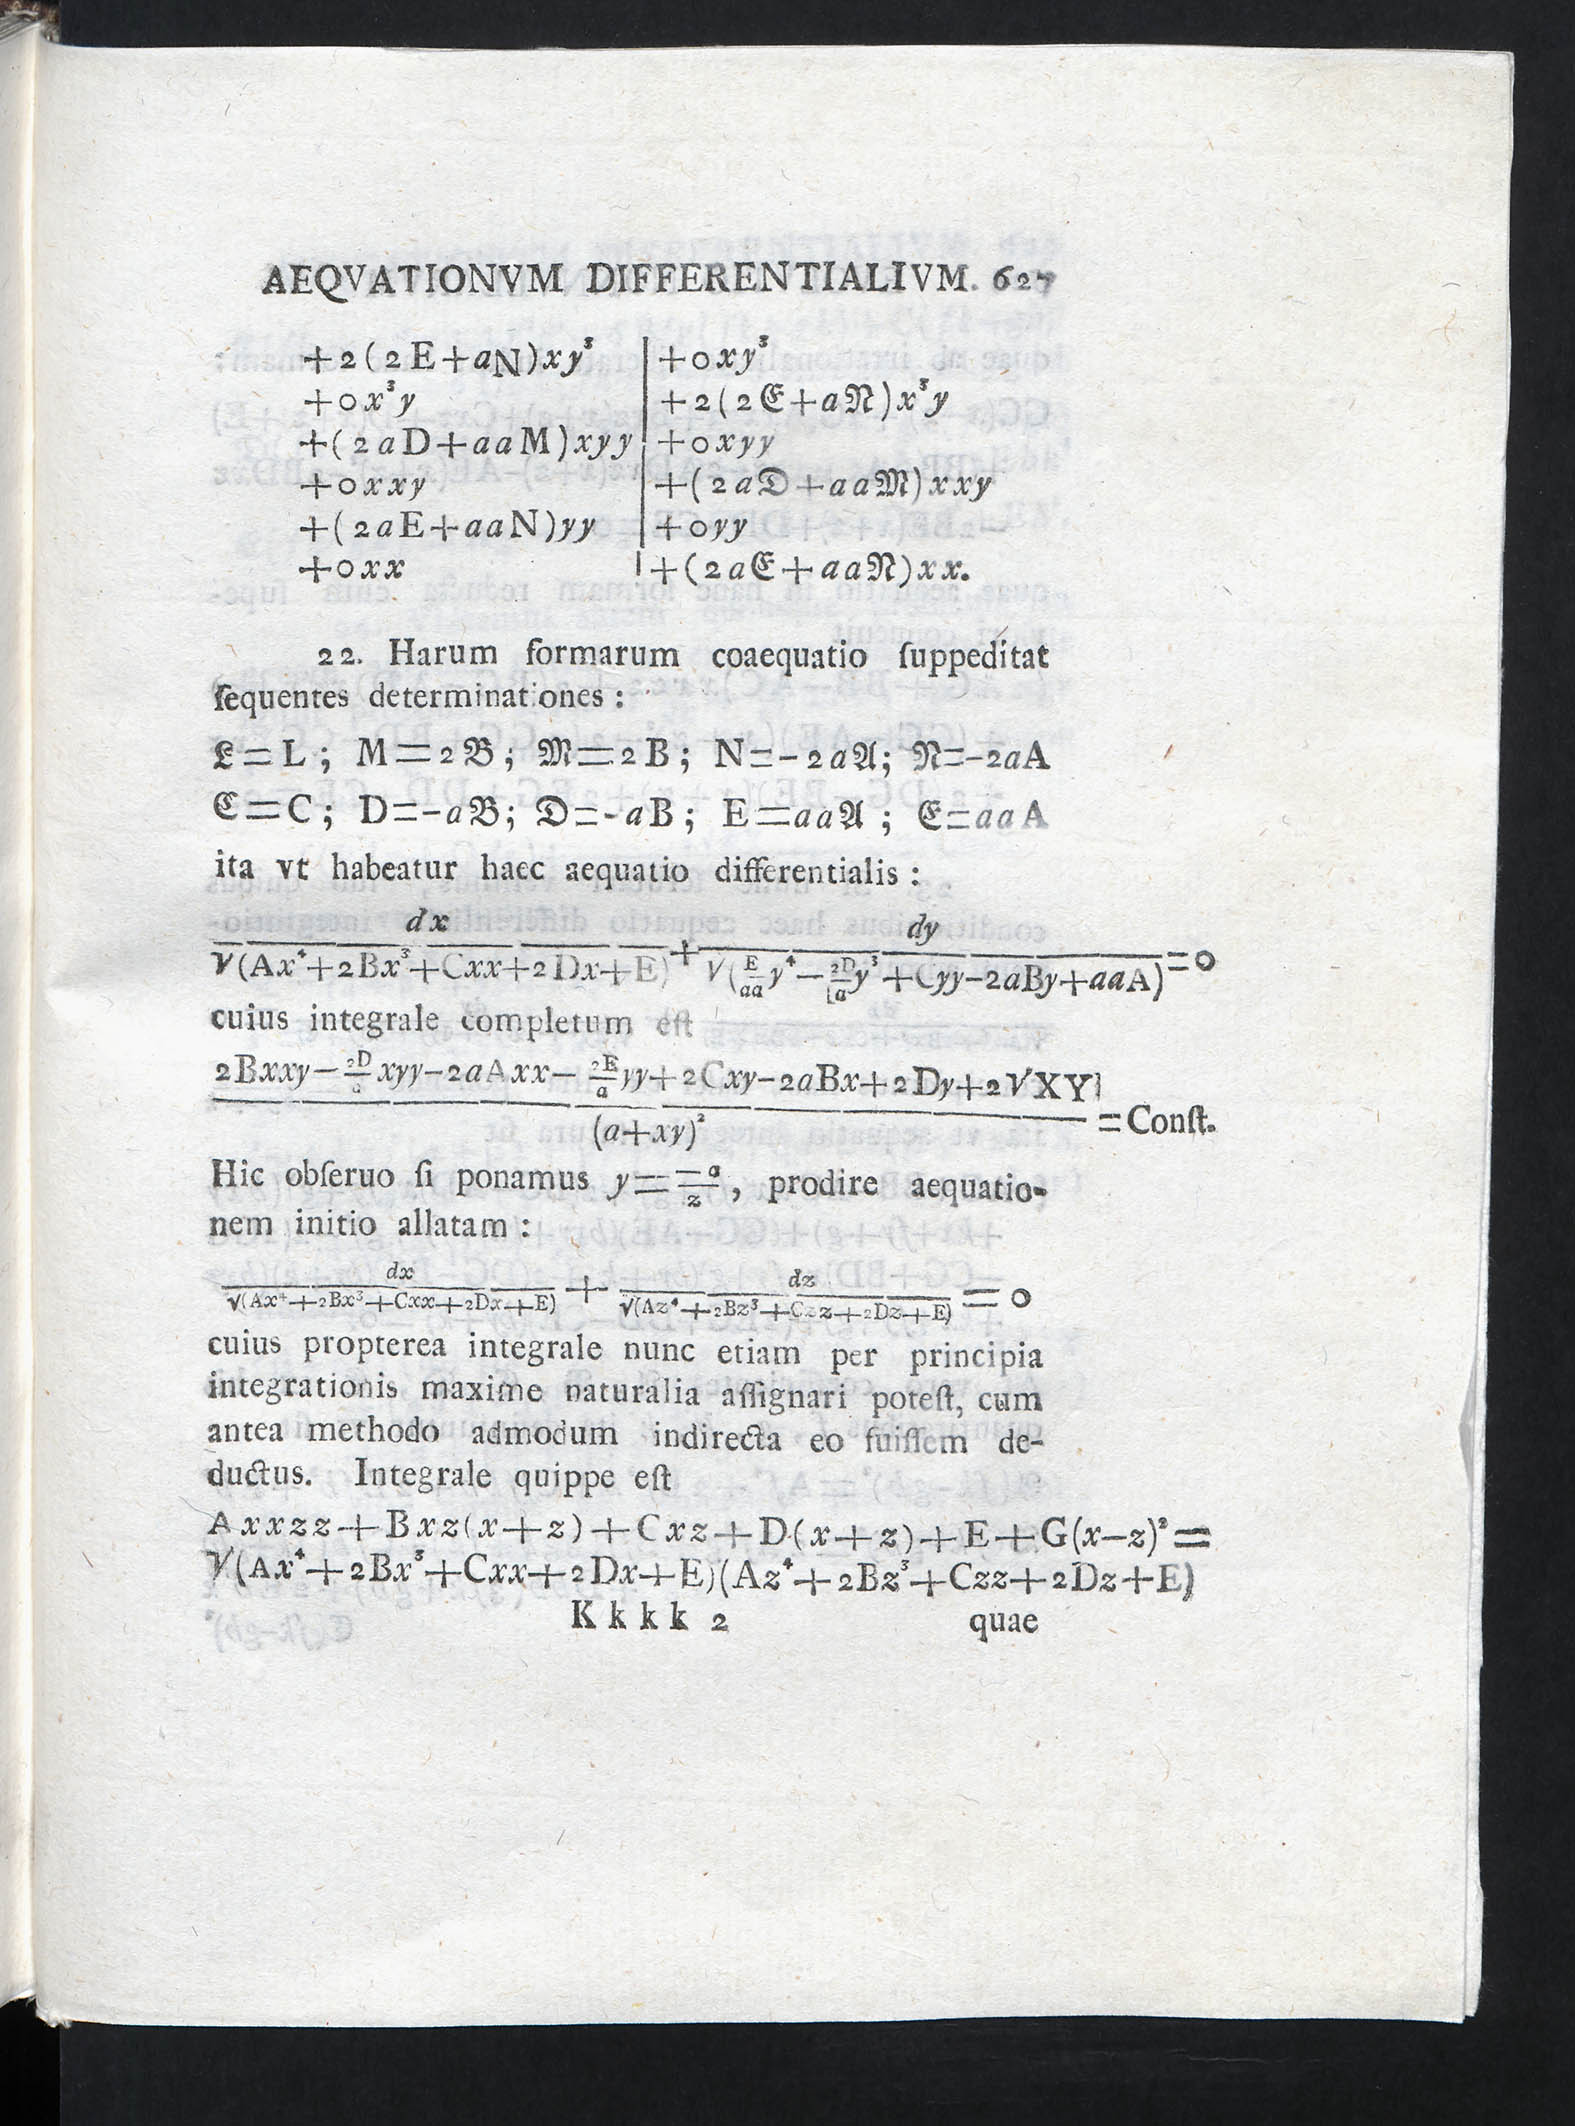 AEQVATIONVM DIFFERENTIALIVM. 627
+2(2E+aN)xy³ | +0xy³
+0x³y | +2(2𝕰+a𝕹)x³y
+(2aD+aaM)xyy | +0xyy
+0xxy | +(2a𝕯+aa𝕸)xxy
+(2aE+aaN)yy | +0yy
+0xx | +(2a𝕰+aa𝕹)xx.
22. Harum formarum coaequatio ſuppeditat
ſequentes determinationes :
𝕷=L ; M=2𝕭; 𝕸=2B; N=-2a𝕬; 𝕹=-2aA
𝕮=C; D=-a𝕭; 𝕯=-aB; E=aa𝕬 ; 𝕰=aaA
ita vt habeatur haec aequatio differentialis :
dx/√(Ax⁴+2Bx³+Cxx+2Dx+E) + dy/√(E/aa y⁴ − 2D/a y³+Cyy-2aBy+aaA) =0
cuius integrale completum eſt
(2Bxxy − 2D/a xyy-2aAxx − 2E/a yy+2Cxy-2aBx+2Dy+2√XY)/(a+xy)² =Conſt.
Hic obſeruo ſi ponamus y= −a/z, prodire aequatio-
nem initio allatam :
dx/√(Ax⁴+2Bx³+Cxx+2Dx+E) + dz/√(Az⁴+2Bz³+Czz+2Dz+E) =0
cuius propterea integrale nunc etiam per principia
integrationis maxime naturalia aſſignari poteſt, cum
antea methodo admodum indirecta eo fuiſſem de-
ductus. Integrale quippe eſt
Axxzz+Bxz(x+z)+Cxz+D(x+z)+E+G(x-z)²=
√(Ax⁴+2Bx³+Cxx+2Dx+E)(Az⁴+2Bz³+Czz+2Dz+E)
Kkkk 2 quae